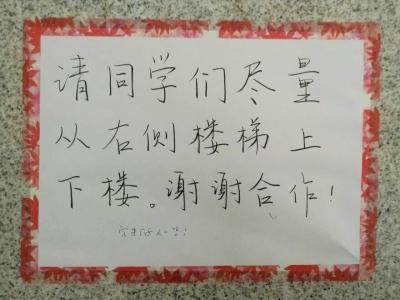 请同学们尽量
从右侧楼梯上
下楼。谢谢合作!